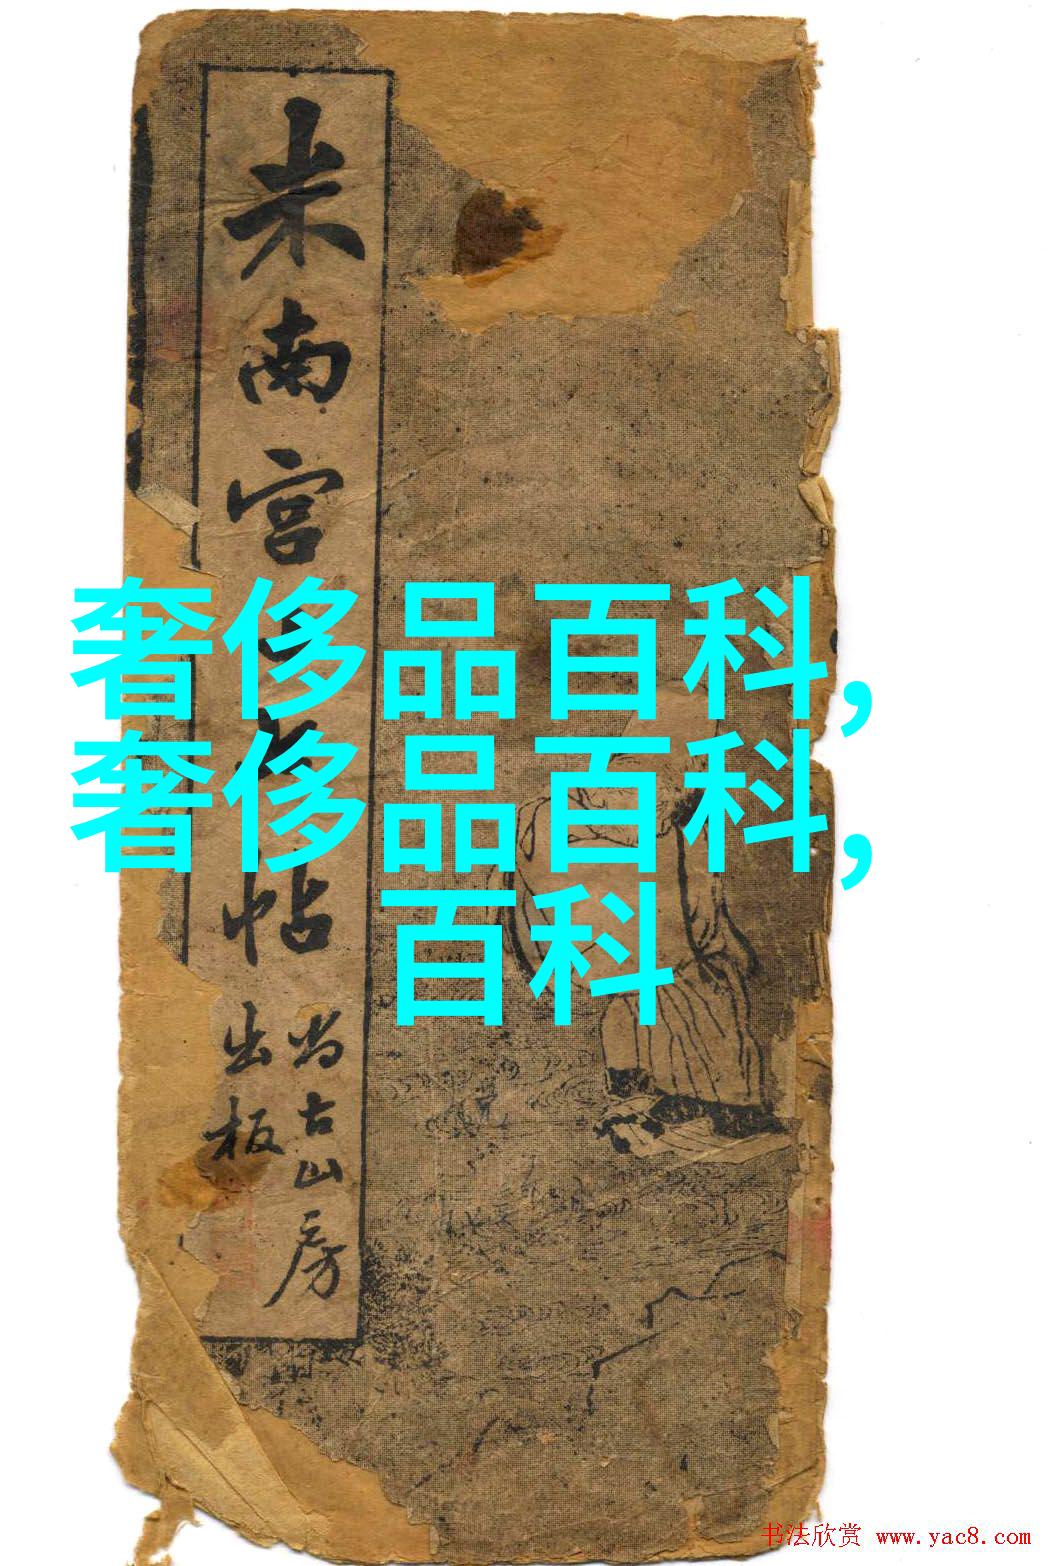 米南宫
帖
尚古山房
出板
奢侈品百科,
奢侈品百科,
百科
书法欣赏 www.yac8.com